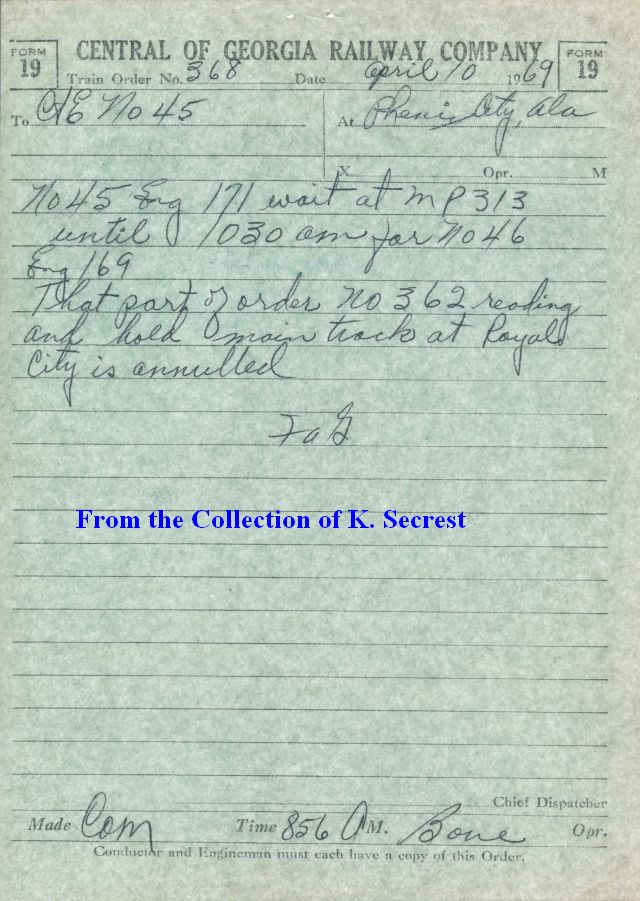 FORM 19
CENTRAL OF GEORGIA RAILWAY COMPANY
FORM 19
Train Order No. 368 Date april 10 1969
To C&E No 45 At Phenix City, Ala
X Opr. M
No 45 Eng 171 wait at MP 313
until 1030 am for No 46
Eng 169
That part of order no 362 reading
and hold main track at Royal
City is annulled
From the Collection of K. Secrest
Chief Dispatcher
Made Com Time 856 A M. Bone Opr.
Conductor and Engineman must each have a copy of this Order.